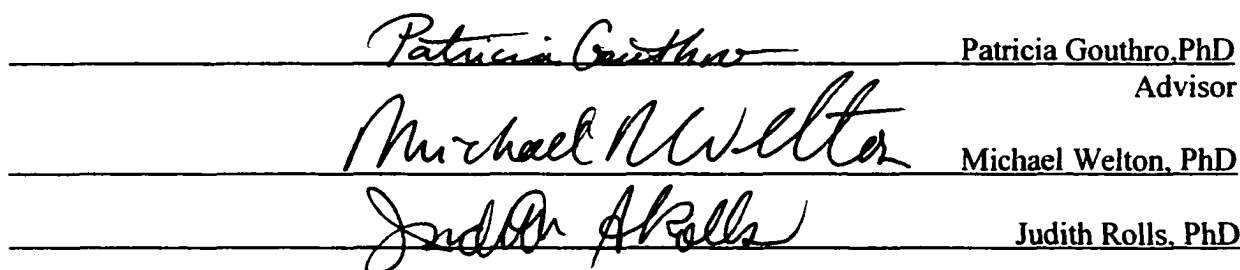 Patricia Gouthro Patricia Gouthro,PhD
Advisor
Michael R Welton Michael Welton, PhD
Judith A Rolls Judith Rolls, PhD